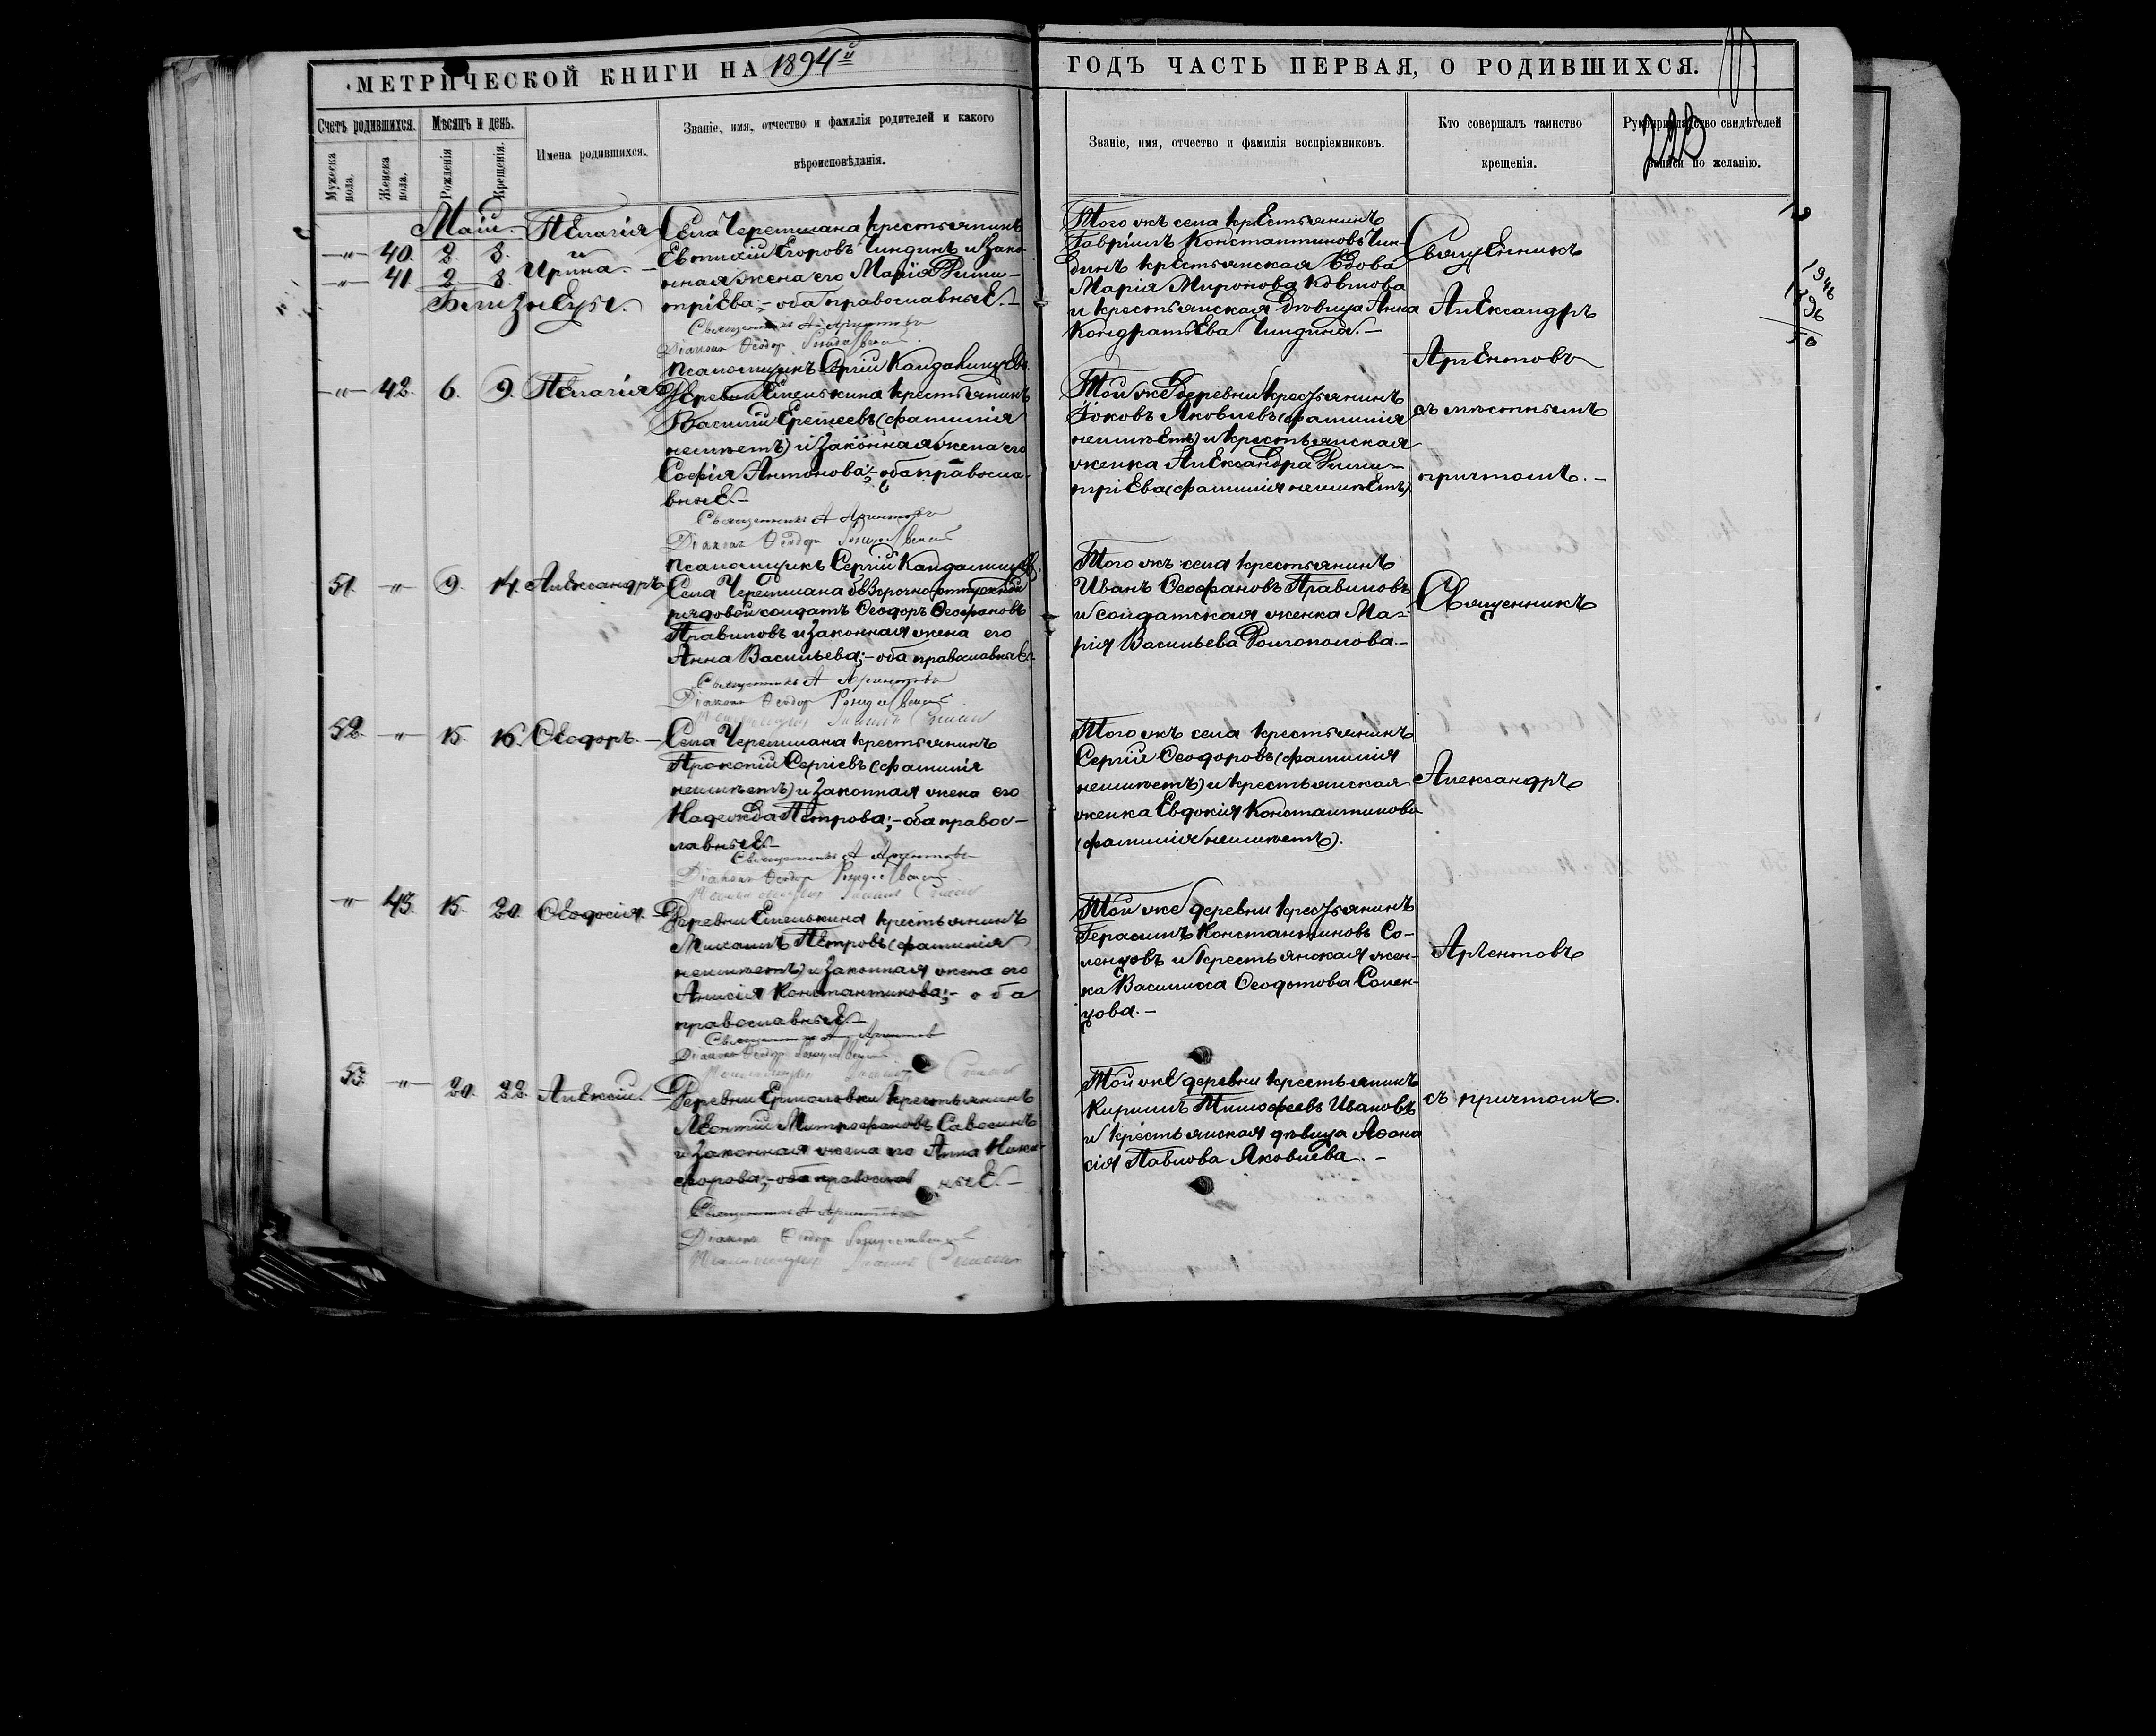 МЕТРИЧЕСКОЙ КНИГИ НА 1894й
ГОДЪ ЧАСТЬ ПЕРВАЯ, О РОДИВШИХСЯ.
Счетъ родившихся.
Мѣсяцъ и день.
Имена родившихся.
Званіе, имя, отчество и фамилія родителей и какого
вѣроисповѣданія.
Мужеска пола.
Женска пола.
Рожденія
Крещенія.
Званіе, имя, отчество и фамилія воспріемниковъ.
Кто совершалъ таинство
крещенія.
Рукоприкладство свидѣтелей
записи по желанію.
Маій.
-"- 40. 2. 3.
-"- 41. 2. 3.
Близнецы.
Пелагія
и
Ирина. -
Села Черемшана крестьянинъ
Евтихій Егоровъ Чиндинъ и зако-
нная жена его Марія Дими-
тріева; - оба православные. -
Священникъ А Аргентовъ
Діаконъ Ѳеодор Рождественскій
Псаломщикъ Сергій
Того жъ села крестьянинъ
Гавріилъ Константиновъ Чин-
динъ крестьянская вдова
Марія Миронова
и крестьянская дѣвица Анна
Кондратьева Чиндина. -
Священникъ
Александръ
Аргентовъ
съ мѣстнымъ
причтомъ. -
-"- 42. 6. 9. Пелагія
Деревни Емелькина крестьянинъ
Василій Еремеевъ (фамиліи
неимѣетъ) и законная жена его
Софія Антонова; - оба правосла-
вные. -
Священникъ А Аргентовъ
Діаконъ Ѳеодор Рождественскій
Псаломщикъ Сергій
Той же деревни крестьянинъ
Яковлевъ (фамиліи
неимѣетъ) и крестьянская
женка Александра Дими-
тріева (фамиліи неимѣетъ).
51. -"- 9. 14. Александръ.
Села Черемшана безсрочно-отпускной
рядовой солдатъ Ѳеодоръ Ѳеофановъ
Правиловъ и законная жена его
Анна Васильева; - оба православные. -
Священникъ А Аргентовъ
Діаконъ Ѳеодор Рождественскій
Псаломщикъ
Того жъ села крестьянинъ
Иванъ Ѳеофановъ Правиловъ
и солдатская женка Ма-
рія Васильева Долгополова. -
Священникъ
52. -"- 15. 16. Ѳеодоръ. -
Села Черемшана крестьянинъ
Прокопій Сергіевъ (фамиліи
неимѣетъ) и законная жена его
Надежда Петрова; - оба правос-
лавные. -
Священникъ А Аргентовъ
Діаконъ Ѳеодор Рождественскій
Псаломщикъ
Того жъ села крестьянинъ
Сергій Ѳеодоровъ (фамиліи
неимѣетъ) и крестьянская
женка Евдокія Константинова
(фамиліи неимѣетъ).
Александръ
-"- 43. 15. 20. Ѳеодосія. -
Деревни Емелькина крестьянинъ
Михаилъ Петровъ (фамиліи
неимѣетъ) и законная жена его
Анисія Константинова; - оба
православные. -
Священникъ А Аргентовъ
Діаконъ Ѳеодор Рождественскій
Псаломщикъ
Той же деревни крестьянинъ
Герасимъ Константиновъ Со-
ленцовъ и крестьянская жен-
ка Василиса Ѳеодотова Солен-
цова. -
Аргентовъ
53. -"- 20. 22. Алексій. -
Деревни Ермоловки крестьянинъ
Леонтій Митрофановъ Савосинъ
и законная жена его Анна Ники-
форова; - оба православные. -
Священникъ А Аргентовъ
Діаконъ Ѳеодор Рождественскій
Псаломщикъ
Той же деревни крестьянинъ
Кириллъ Тимофеевъ Ивановъ
и крестьянская дѣвица Аѳана
сія Павлова Яковлева. -
съ причтомъ.